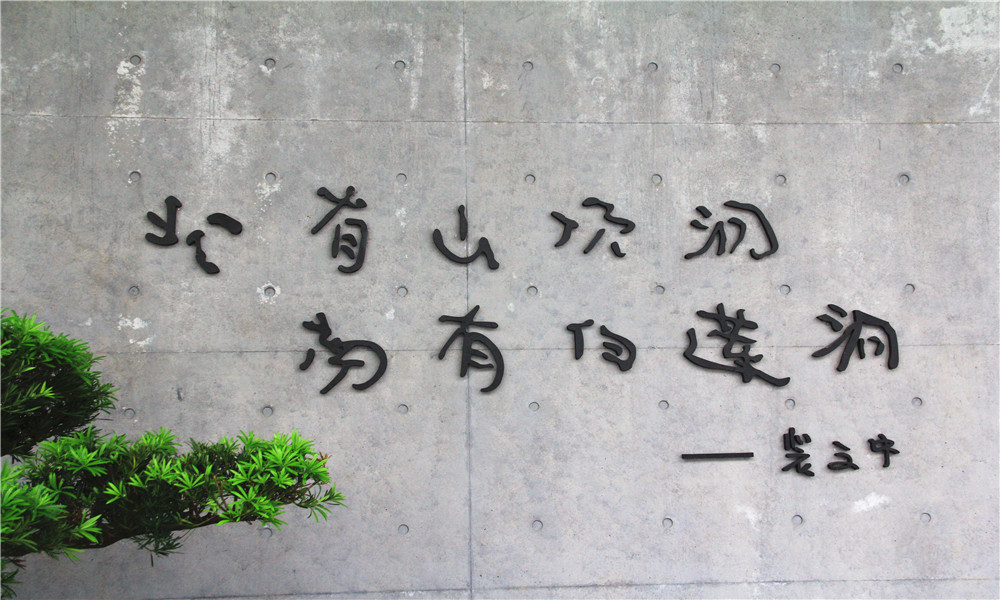 北有山顶洞
南有伯莲洞
— 裴文中